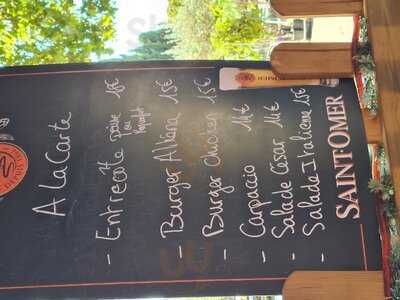 A La Carte
- Entrecôte poivre 18€
ou
- Burger Altina 15€
- Burger Chicken 15€
- Carpaccio 14€
- Salade César 14€
- Salade Italienne 15€
SAINT OMER